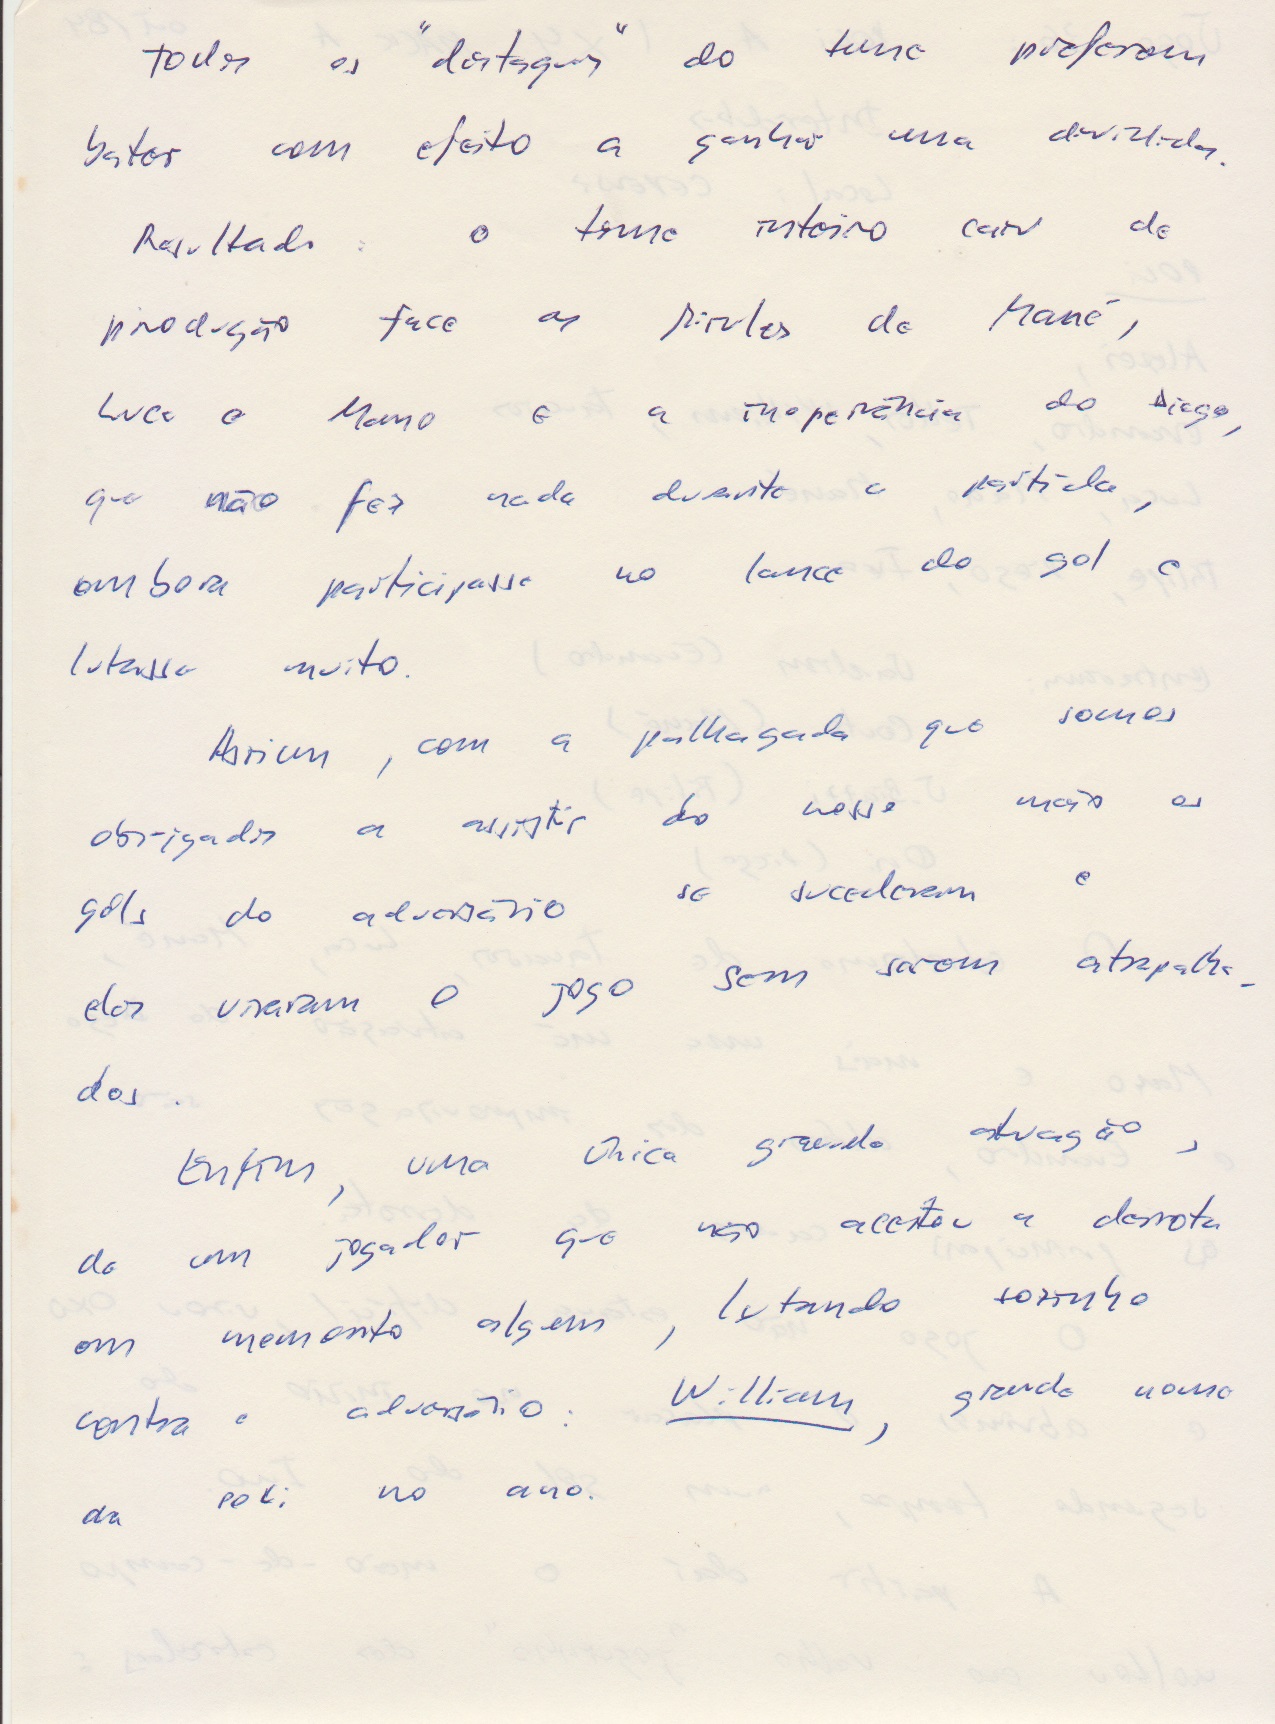 Todos os "destaques" do time preferem
bater com efeito a ganhar uma dividida.
Resultado: o time inteiro caiu de
produção face as firulas de Mané,
Luca e Mano e a inoperância do Diego,
que não fez nada durante a partida,
embora participasse no lance do gol e
lutasse muito.
Assim, com a palhaçada que somos
obrigados a assistir do nosso meio os
gols do adversário se sucederam e
eles viraram o jogo sem serem atrapalha-
dos.
Enfim, uma única grande atuação,
de um jogador que não aceitou a derrota
em momento algum, lutando sozinho
contra o adversário: William, grande nome
da no ano.